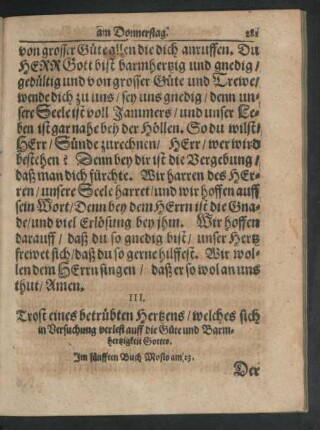 am Donnerstag. 281
von grosser Güte allen die dich anruffen. Du
HERR Gott bist barmhertzig und gnedig /
gedültig und von grosser Güte und Trewe /
wende dich zu uns / sey uns gnedig / denn un-
sere Seele ist voll Jammers / und unser Le-
ben ist gar nahe bey der Höllen. So du wilst /
HErr / Sünde zurechnen / HErr / wer wird
bestehen? Denn bey dir ist die Vergebung /
daß man dich fürchte. Wir harren des HEr-
ren / unsere Seele harret / und wir hoffen auff
sein Wort / Denn bey dem HErrn ist die Gna-
de / und viel Erlösung bey jhm. Wir hoffen
darauff / daß du so gnedig bist / unser Hertz
frewet sich / daß du so gerne hilffest. Wir wol-
len dem HErrn singen / daß er so wol an uns
thut / Amen.
III.
Trost eines betrübten Hertzens / welches sich
in Versuchung verlest auff die Güte und Barm-
hertzigkeit Gottes.
Im fünfften Buch Mosis am 13.
Der